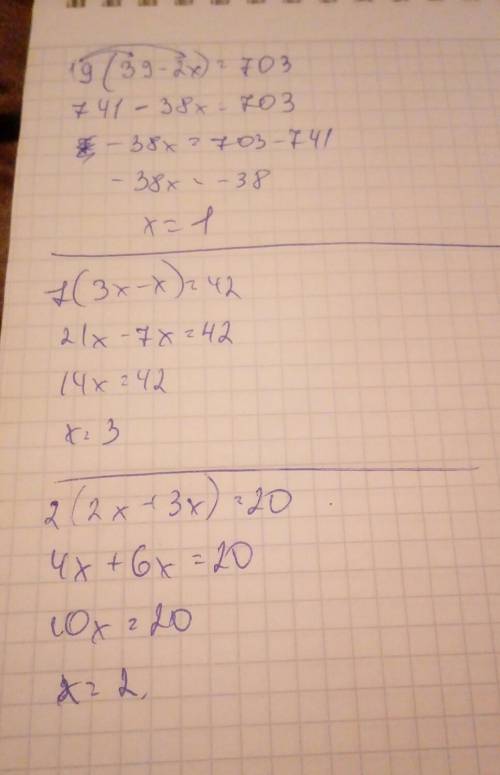 19(39-2x)=703
741-38x=703
-38x=703-741
-38x=-38
x=1
7(3x-x)=42
21x-7x=42
14x=42
x=3
2(2x+3x)=20
4x+6x=20
10x=20
x=2.